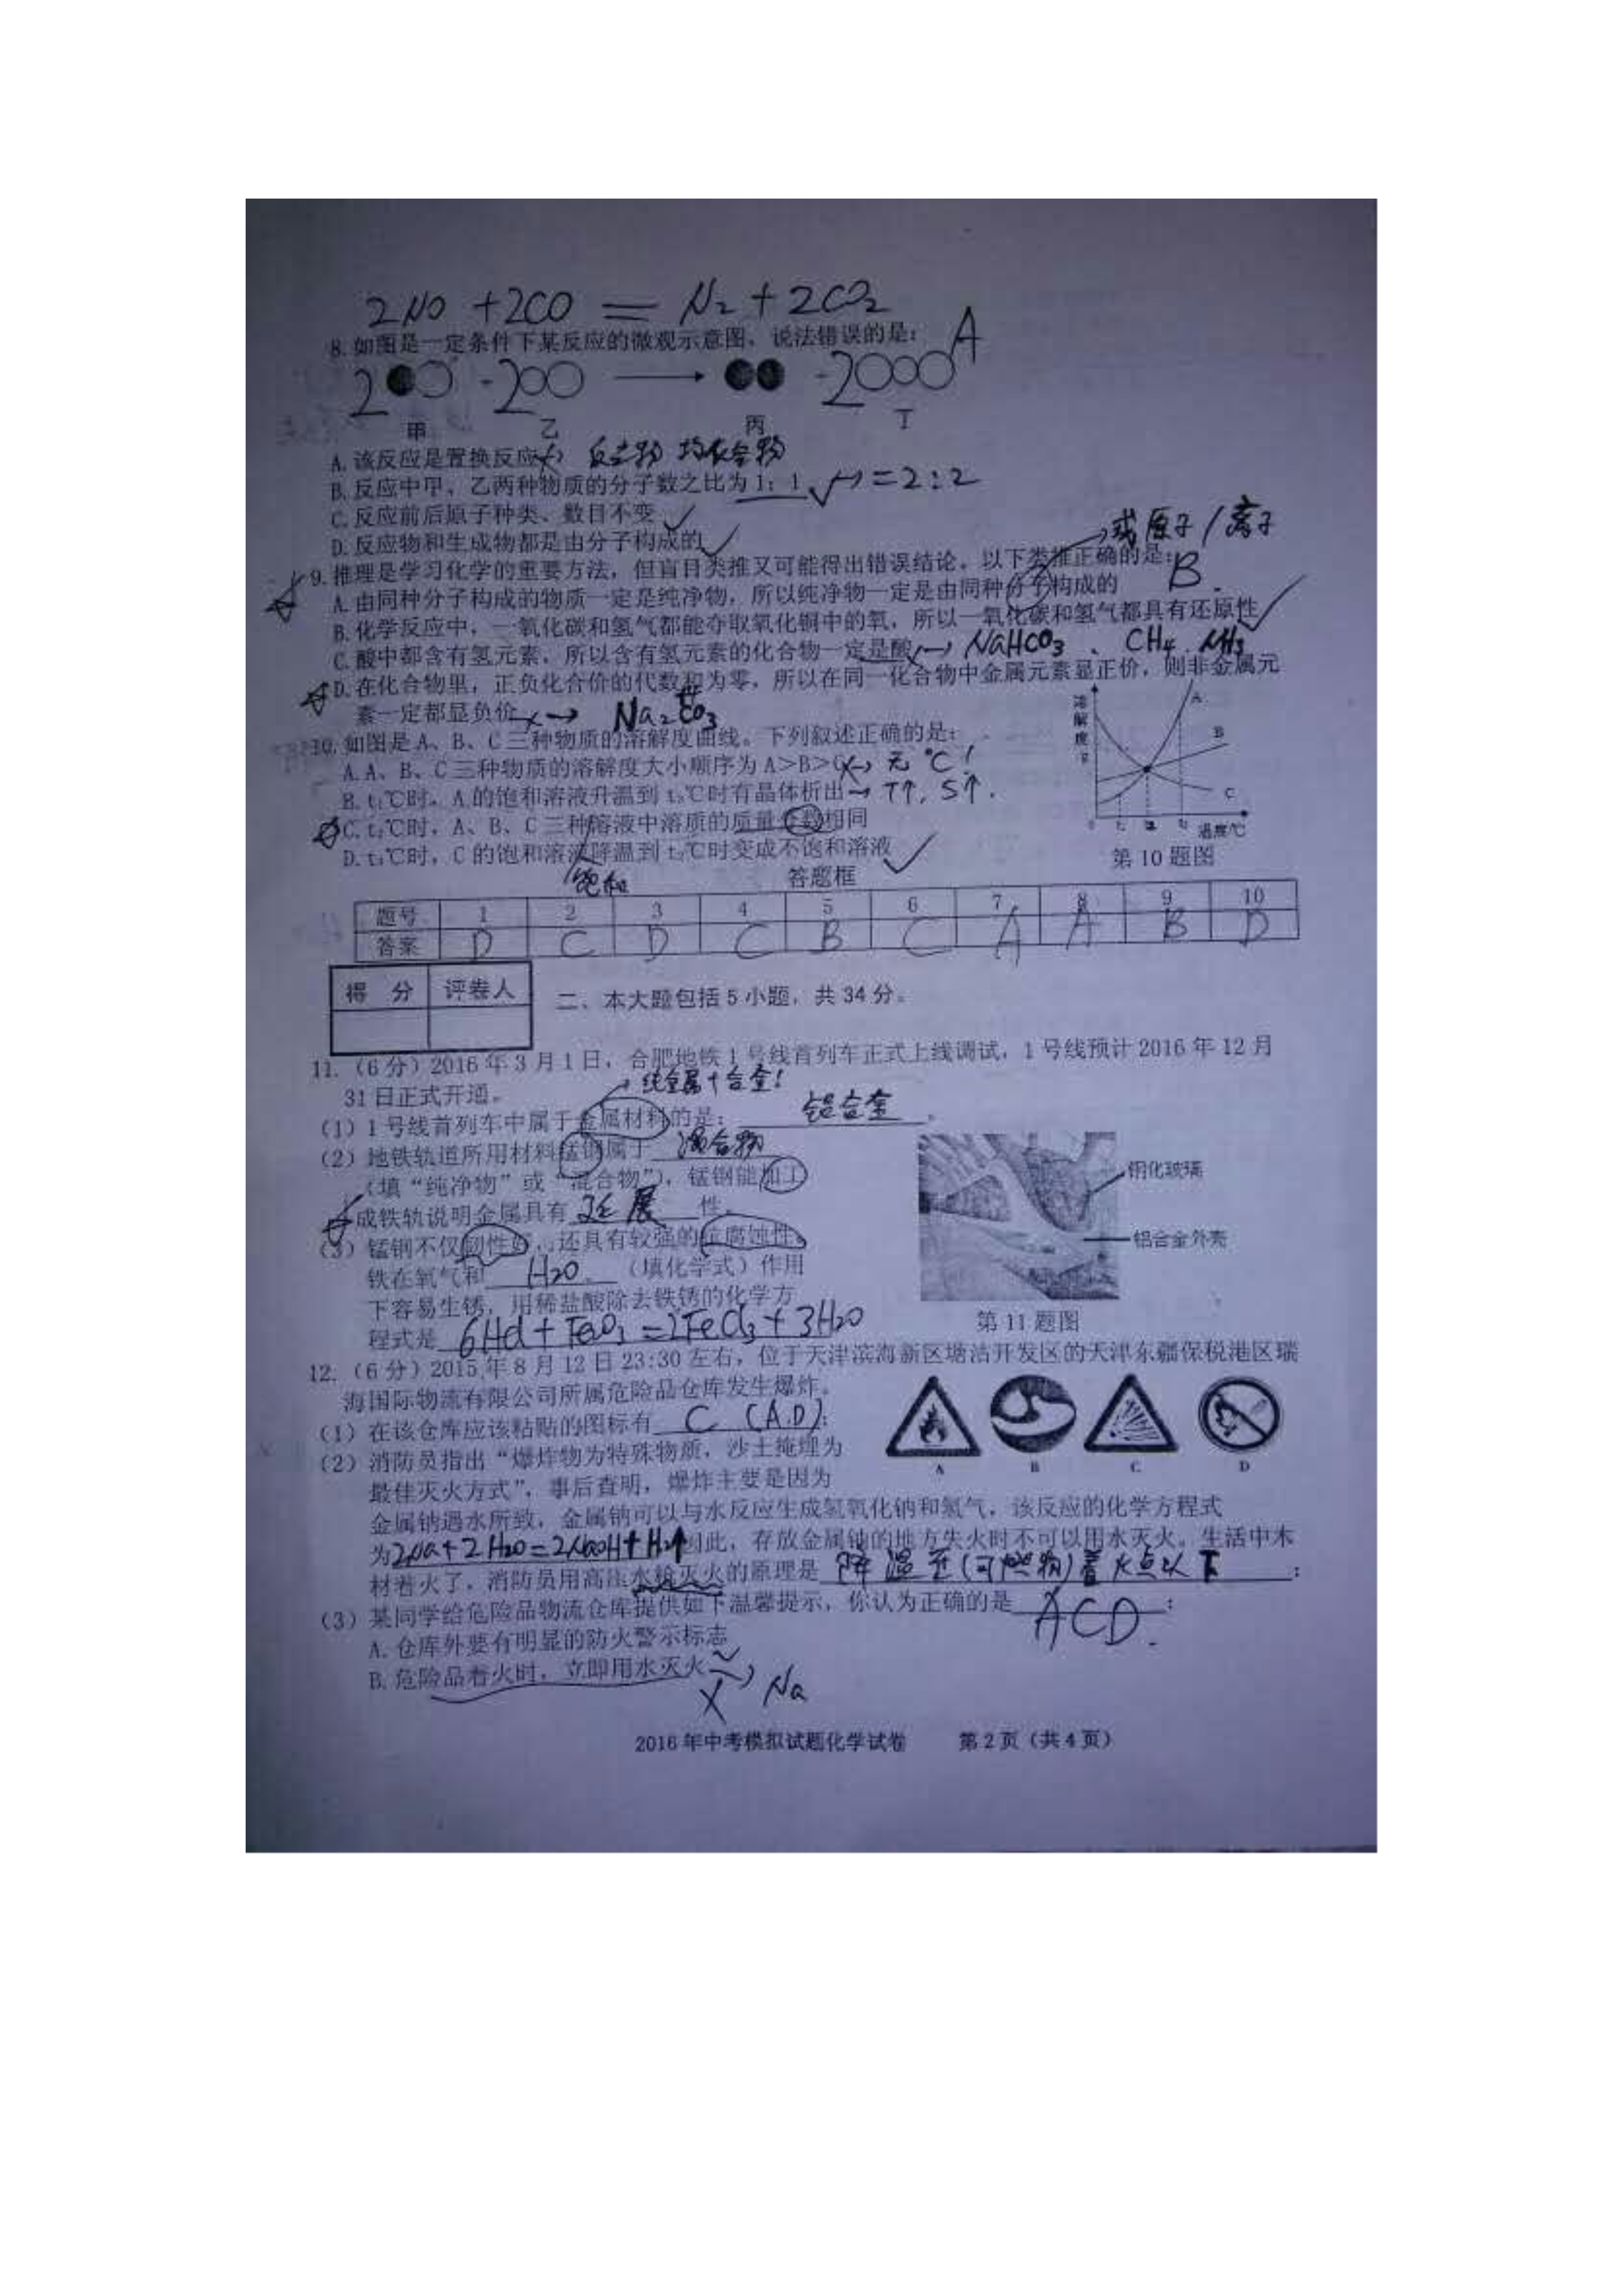 2NO + 2CO = N₂ + 2CO₂
8.如图是一定条件下某反应的微观示意图，说法错误的是： A
2 2 2
甲 乙 丙 丁
A.该反应是置换反应 × → 反应物均化合物
B.反应中甲、乙两种物质的分子数之比为1：1 √ → =2:2
C.反应前后原子种类、数目不变 √
D.反应物和生成物都是由分子构成的 √
→或原子/离子
9.推理是学习化学的重要方法，但盲目类推又可能得出错误结论。以下类推正确的是： B
A.由同种分子构成的物质一定是纯净物，所以纯净物一定是由同种分子构成的
B.化学反应中，一氧化碳和氢气都能夺取氧化铜中的氧，所以一氧化碳和氢气都具有还原性 √
C.酸中都含有氢元素，所以含有氢元素的化合物一定是酸 × → NaHCO₃、CH₄、NH₃
D.在化合物里，正负化合价的代数和为零，所以在同一化合物中金属元素显正价，则非金属元
素一定都显负价 × → Na₂CO₃
10.如图是A、B、C三种物质的溶解度曲线。下列叙述正确的是：
A.A、B、C三种物质的溶解度大小顺序为A>B>C × → 无℃！
B.t₁℃时，A的饱和溶液升温到t₃℃时有晶体析出 → T↑, S↑.
C.t₂℃时，A、B、C三种溶液中溶质的质量分数相同
D.t₃℃时，C的饱和溶液降温到t₂℃时变成不饱和溶液 √
饱和
溶解度/g
A
B
C
0 t₁ t₂ t₃ 温度/℃
第10题图
答题框
题号 1 2 3 4 5 6 7 8 9 10
答案 D C D C B C A A B D
得 分 评卷人
二、本大题包括5小题，共34分。
11.（6分）2016年3月1日，合肥地铁1号线首列车正式上线调试，1号线预计2016年12月
31日正式开通。
纯金属+合金！
（1）1号线首列车中属于金属材料的是： 铝合金 。
（2）地铁轨道所用材料锰钢属于 混合物
（填“纯净物”或“混合物”），锰钢能加工
成铁轨说明金属具有 延展 性。
（3）锰钢不仅韧性好，还具有较强的抗腐蚀性。
铁在氧气和 H₂O （填化学式）作用
下容易生锈，用稀盐酸除去铁锈的化学方
程式是 6HCl + Fe₂O₃ = 2FeCl₃ + 3H₂O
钢化玻璃
铝合金外壳
第11题图
12.（6分）2015年8月12日23:30左右，位于天津滨海新区塘沽开发区的天津东疆保税港区瑞
海国际物流有限公司所属危险品仓库发生爆炸。
（1）在该仓库应该粘贴的图标有 C (A.D)；
A B C D
（2）消防员指出“爆炸物为特殊物质，沙土掩埋为
最佳灭火方式”，事后查明，爆炸主要是因为
金属钠遇水所致，金属钠可以与水反应生成氢氧化钠和氢气，该反应的化学方程式
为 2Na + 2H₂O = 2NaOH + H₂↑ 因此，存放金属钠的地方失火时不可以用水灭火。生活中木
材着火了，消防员用高压水枪灭火的原理是 降温至(可燃物)着火点以下 ；
（3）某同学给危险品物流仓库提供如下温馨提示，你认为正确的是 ACD ；
A.仓库外要有明显的防火警示标志
B.危险品着火时，立即用水灭火 × → Na
2016年中考模拟试题化学试卷 第2页（共4页）